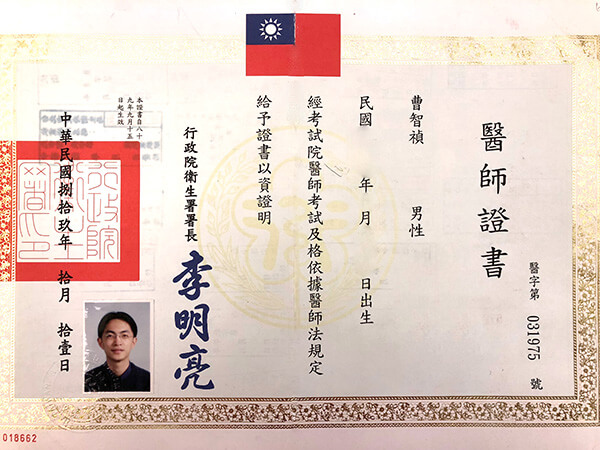 醫師證書
醫字第 031975 號
曹智禎 男性
民國 年 月 日出生
經考試院醫師考試及格依據醫師法規定
給予證書以資證明
行政院衛生署署長 李明亮
本證書自八十
九年九月十五
日起生效
中華民國捌拾玖年 拾月 拾壹日
行政院
衛生署
印
018662